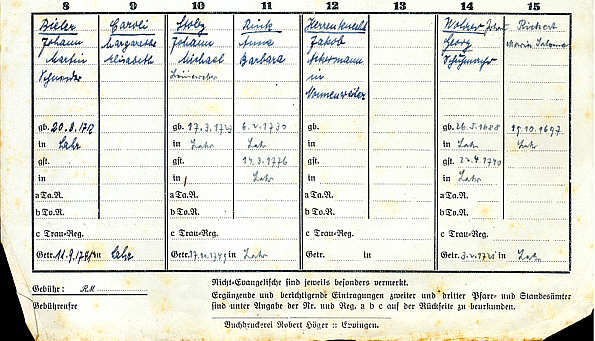 8 9 10 11 12 13 14 15
Bieler
Johann
Martin
Schneider
Caroli
Margaretha
Elisabeth
Stolz
Johann
Michael
Leineweber
Rink
Anna
Barbara
Herrenknecht
Jakob
Ackermann
in
Nonnenweier
Georg
Schuhmacher
Maria Salome
gb. 20.8.
gb. 17.3.
6.2.1730
gb.
gb. 26.3.1688
15.10.1697
in Lahr
in Lahr
Lahr
in
in Lahr
Lahr
gst.
gst.
14.3.1776
gst.
gst. 22.4.1740
in
in
Lahr
in
in Lahr
a Ta.R.
a Ta.R.
a Ta.R.
a Ta.R.
b To.R.
b To.R.
b To.R.
b To.R.
c Trau-Reg.
c Trau-Reg.
c Trau-Reg.
c Trau-Reg.
Getr. in Lahr
Getr. in Lahr
Getr. in
Getr. in Lahr
Gebühr: RM
Gebührenfrei
Nicht-Evangelische sind jeweils besonders vermerkt.
Ergänzende und berichtigende Eintragungen zweiter und dritter Pfarr- und Standesämter
sind unter Angabe der Nr. und Reg. a b c auf der Rückseite zu beurkunden.
Buchdruckerei Robert Höger :: Eppingen.